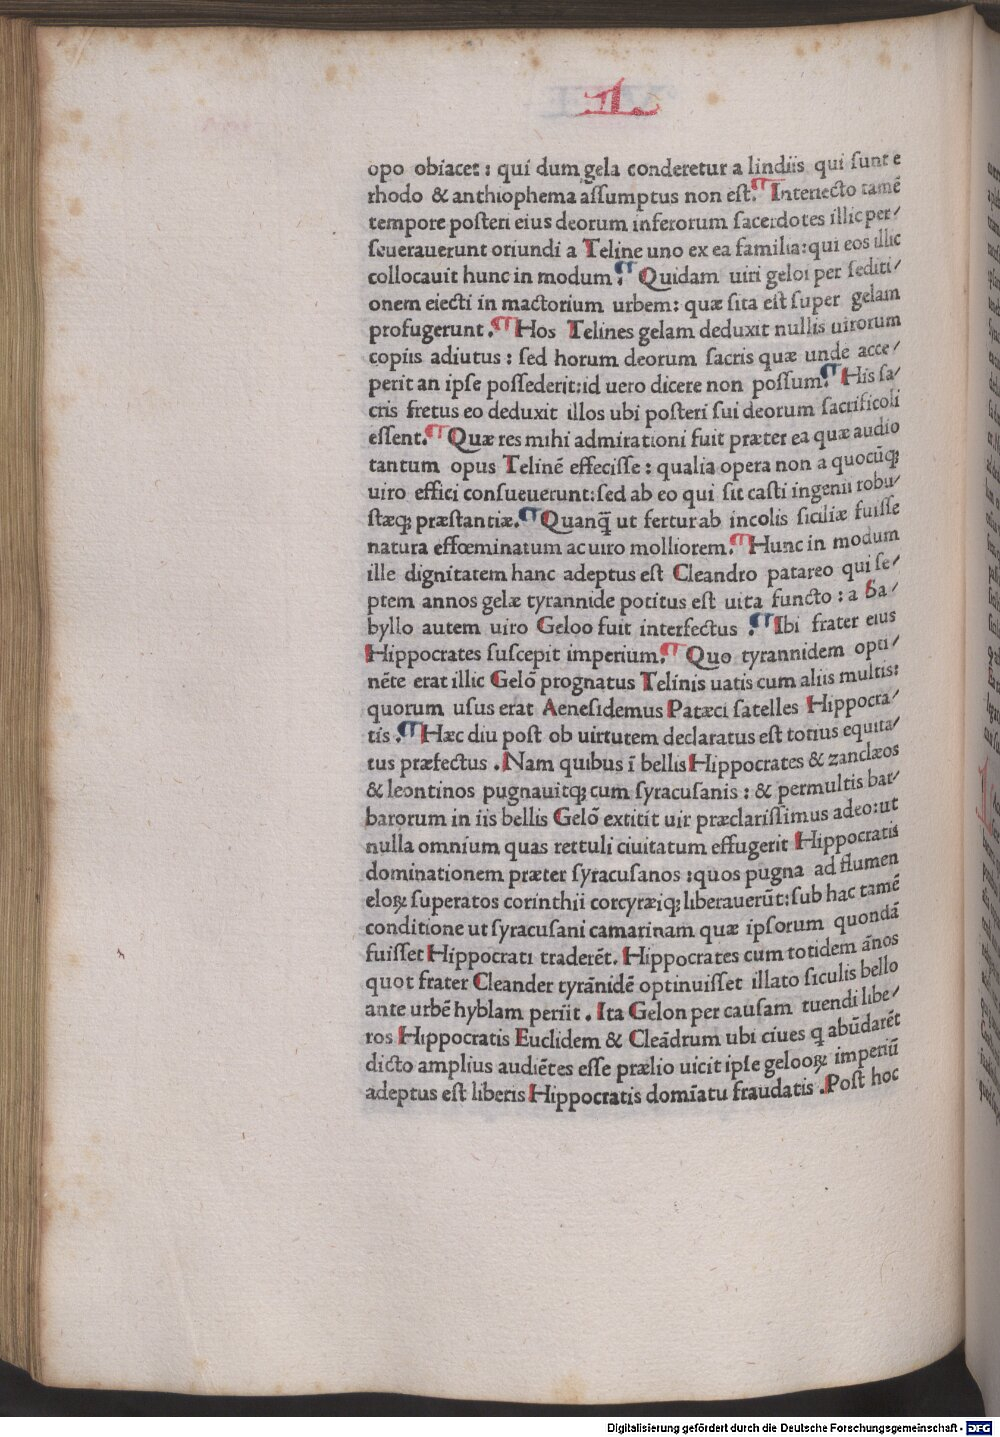 L
opo obiacet : qui dum gela conderetur a lindiis qui sunt e
rhodo & anthiophema assumptus non est. ¶ Interiecto tamē
tempore posteri eius deorum inferorum sacerdotes illic per/
seuerauerunt oriundi a Teline uno ex ea familia: qui eos illic
collocauit hunc in modum. ¶ Quidam uiri geloi per sediti/
onem eiecti in mactorium urbem: quæ sita est super gelam
profugerunt. ¶ Hos Telines gelam deduxit nullis uirorum
copiis adiutus : sed horum deorum sacris quæ unde acce/
perit an ipse possederit: id uero dicere non possum. ¶ His sa/
cris fretus eo deduxit illos ubi posteri sui deorum sacrificoli
essent. ¶ Quæ res mihi admirationi fuit præter ea quæ audio
tantum opus Telinē effecisse : qualia opera non a quocūq;
uiro effici consueuerunt: sed ab eo qui sit casti ingenii robu/
stæq; præstantiæ. ¶ Quanq̄ ut fertur ab incolis siciliæ fuisse
natura effœminatum ac uiro molliorem. ¶ Hunc in modum
ille dignitatem hanc adeptus est Cleandro patareo qui se/
ptem annos gelæ tyrannide potitus est uita functo : a Sa/
byllo autem uiro Geloo fuit interfectus . ¶ Ibi frater eius
Hippocrates suscepit imperium. ¶ Quo tyrannidem opti/
nēte erat illic Gelō prognatus Telinis uatis cum aliis multis:
quorum usus erat Aenesidemus Patæci satelles Hippocra/
tis . ¶ Hæc diu post ob uirtutem declaratus est totius equita/
tus præfectus . Nam quibus ī bellis Hippocrates & zanclæos
& leontinos pugnauitq; cum syracusanis : & permultis bar/
barorum in iis bellis Gelō extitit uir præclarissimus adeo: ut
nulla omnium quas rettuli ciuitatum effugerit Hippocratis
dominationem præter syracusanos : quos pugna ad flumen
eloꝝ superatos corinthii corcyræiq; liberauerūt: sub hac tamē
conditione ut syracusani camarinam quæ ipsorum quondā
fuisset Hippocrati traderēt. Hippocrates cum totidem ānos
quot frater Cleander tyrānidē optinuisset illato siculis bello
ante urbē hyblam periit . Ita Gelon per causam tuendi libe/
ros Hippocratis Euclidem & Cleādrum ubi ciues q abūdarēt
dicto amplius audiētes esse prælio uicit ipse gelooꝝ imperiū
adeptus est liberis Hippocratis domīatu fraudatis . Post hoc
Digitalisierung gefördert durch die Deutsche Forschungsgemeinschaft - DFG